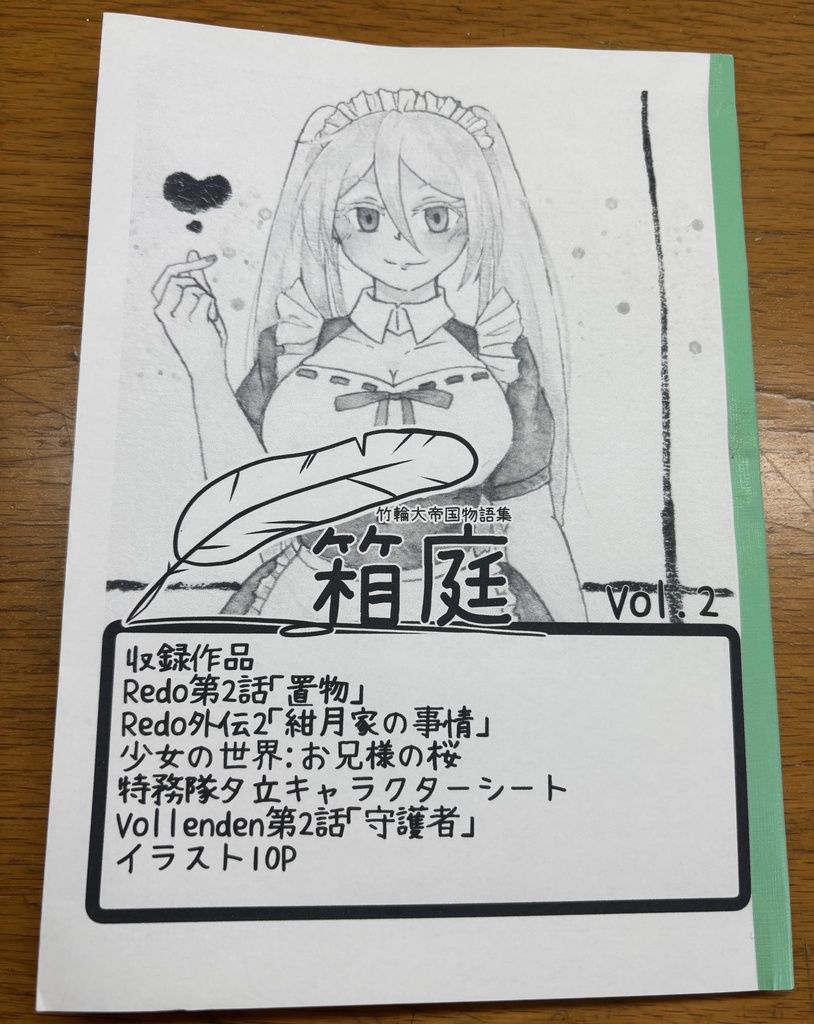 竹輪大帝国物語集
箱庭
Vol.2
収録作品
Redo第2話「置物」
Redo外伝2「紺月家の事情」
少女の世界:お兄様の桜
特務隊夕立キャラクターシート
Vollenden第2話「守護者」
イラスト10P